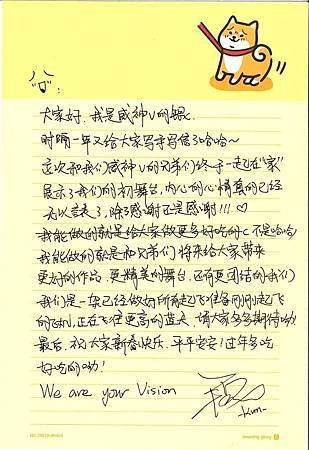 大家好,我是威神V的锟
时隔一年又给大家写手写信了哈哈~
这次和我们威神V的兄弟们终于一起在“家”
展示了我们的初舞台,内心的心情真的已经
无以言表了,除了感谢还是感谢!!! ♡
我能做的就是给大家做更多好吃的(不是哈哈)
我能做的就是和兄弟们将来给大家带来
更好的作品,更精美的舞台,还有更团结的我们
我们是一架已经做好所有起飞准备刚刚起飞
的飞机,正在飞往更高的蓝天,请大家多多期待呦!
最后,祝大家新春快乐,平平安安!过年多吃
好吃的呦!
We are your Vision
-Kun-